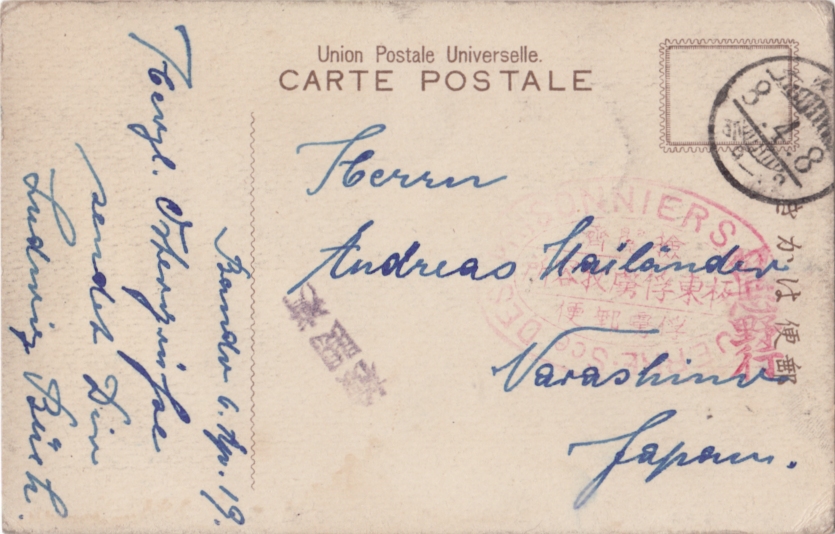 Union Postale Universelle.
CARTE POSTALE
Herrn
Andreas Mailänder
Narashino
Japan.
Bando 6. Ap. 19.
Herzl. Ostergrüße
sendet Dir
Ludwig
きかは便郵
8.4.8
板東俘虜收容所
俘虜郵便